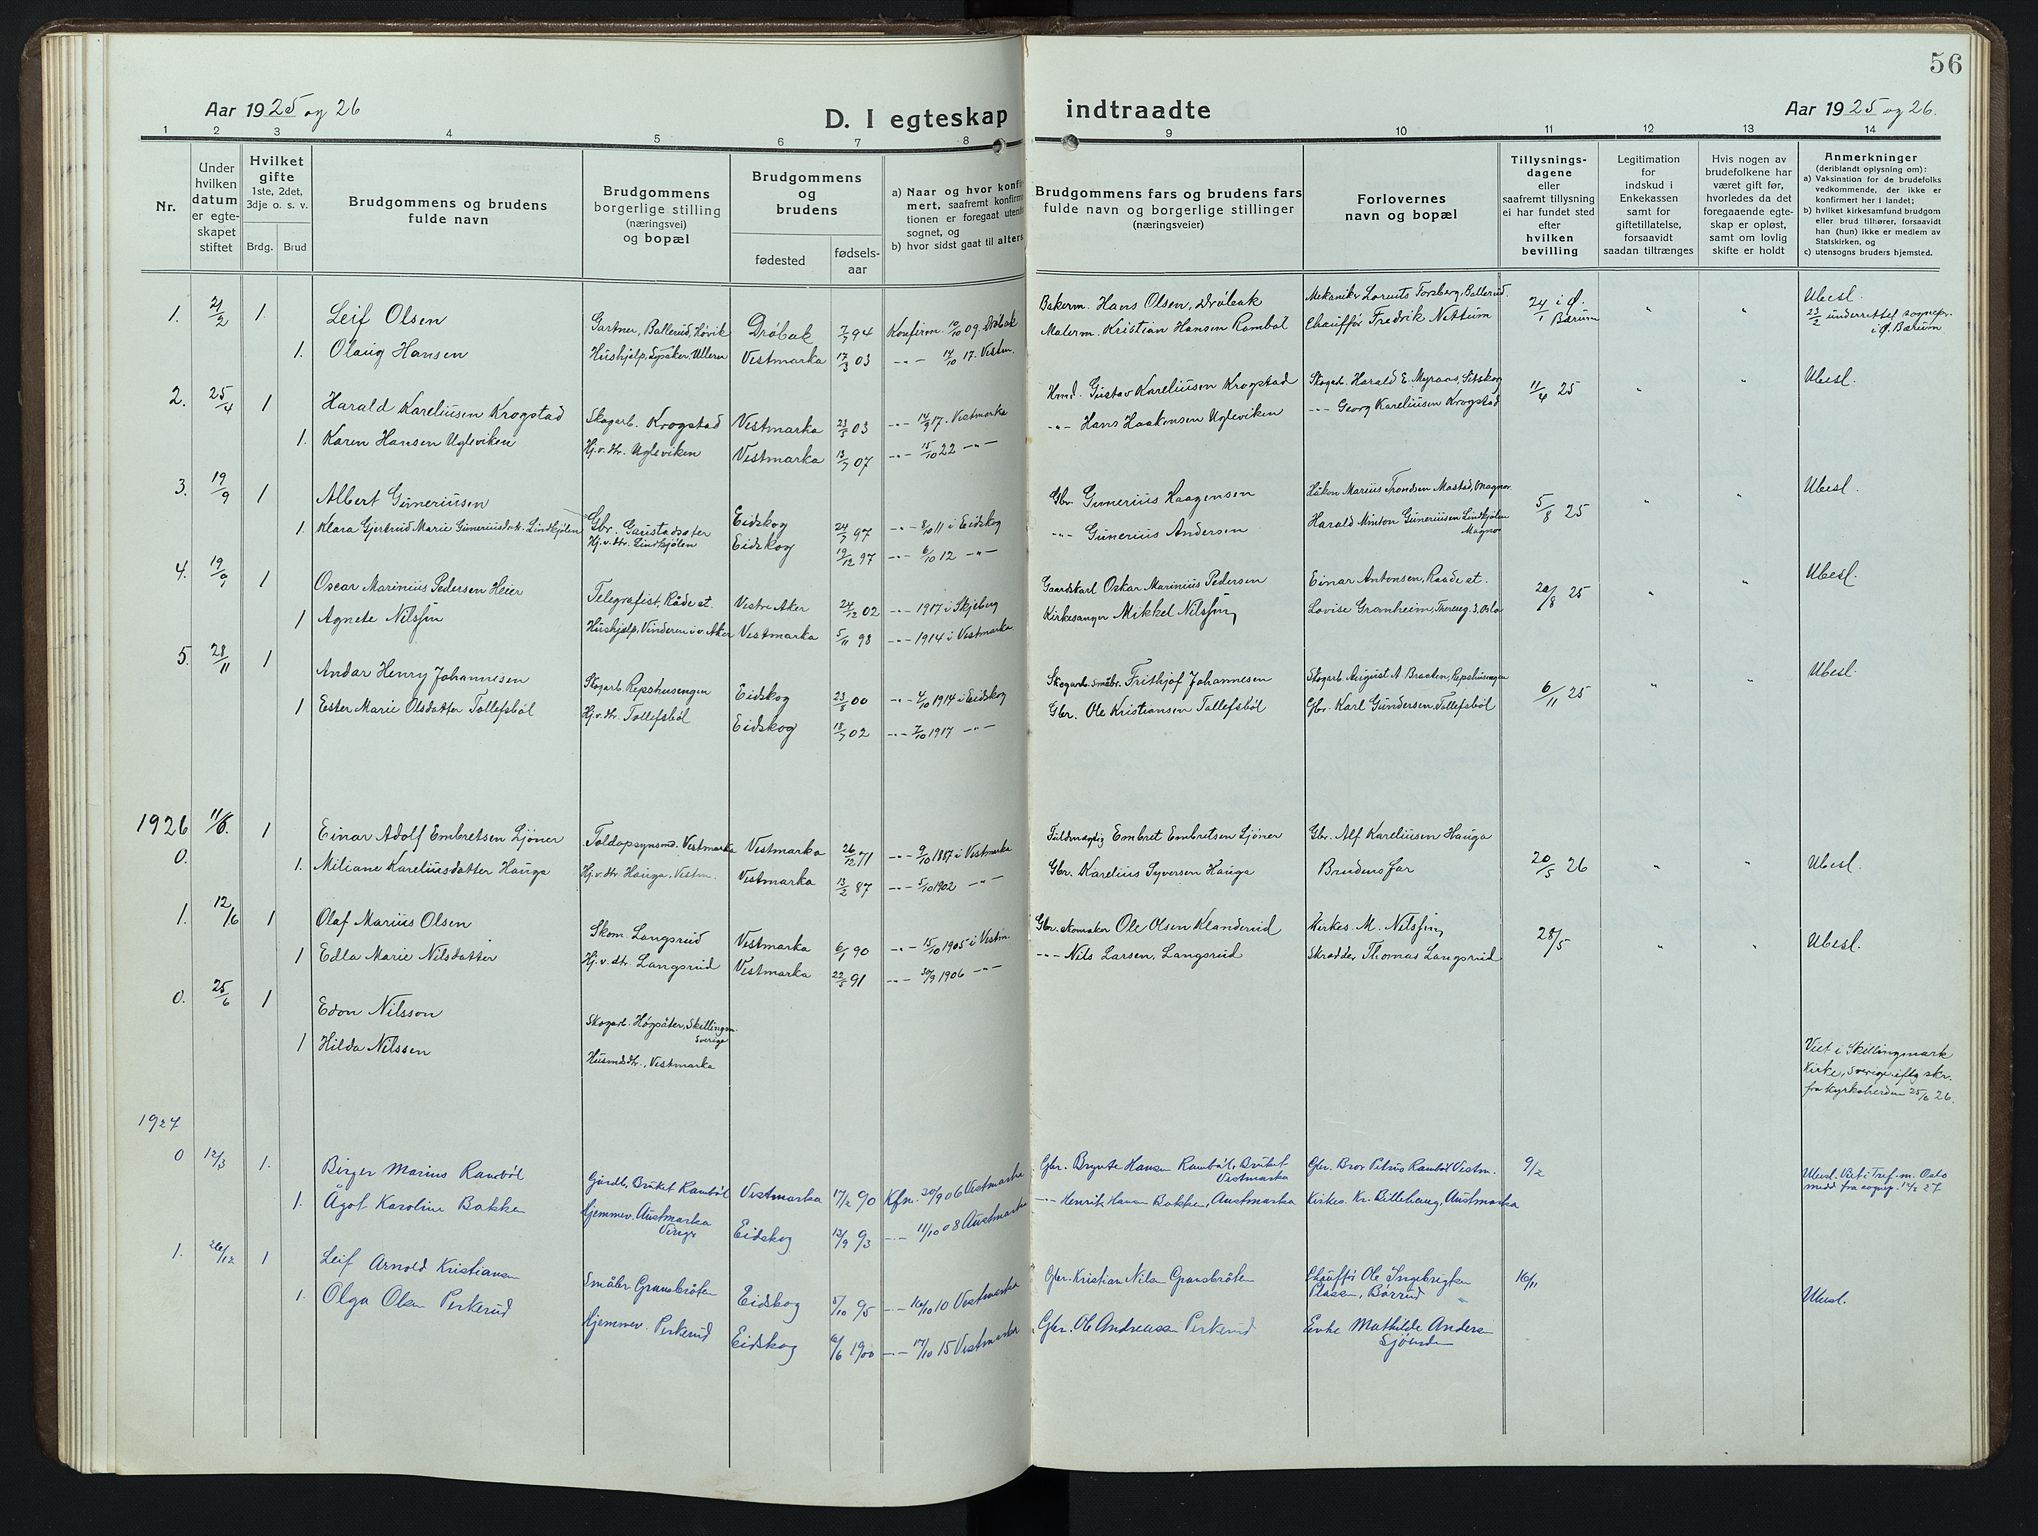 56
Aar 1925 og 26
D. I egteskap indtraadte
Aar 1925 og 26.
1 2 3 4 5 6 7 8 9 10 11 12 13 14
Nr.
Under hvilken datum er egteskapet stiftet
Hvilket gifte
1ste, 2det, 3dje o. s. v.
Brdg. Brud
Brudgommens og brudens fulde navn
Brudgommens borgerlige stilling (næringsvei) og bopæl
Brudgommens og brudens
fødested
fødsels-aar
a) Naar og hvor konfir
mert, saafremt konfirma
tionen er foregaat utenfo
sognet, og
b) hvor sidst gaat til alters
Brudgommens fars og brudens fars
fulde navn og borgerlige stillinger
(næringsveier)
Forlovernes
navn og bopæl
Tillysnings-
dagene
eller
saafremt tillysning
ei har fundet sted
efter
hvilken
bevilling
Legitimation
for
indskud i
Enkekassen
samt for
giftetillatelse,
forsaavidt
saadan tiltrænges
Hvis nogen av
brudefolkene har
været gift før,
hvorledes da det
foregaaende egte-
skap er opløst,
samt om lovlig
skifte er holdt
Anmerkninger
(deriblandt oplysning om):
a) Vaksination for de brudefolks
vedkommende, der ikke er
konfirmert her i landet;
b) hvilket kirkesamfund brudgom
eller brud tilhører, forsaavidt
han (hun) ikke er medlem av
Statskirken, og
c) utensogns bruders hjemsted.
1. 21/2 1. Leif Olsen Gartner, Ballerud, Høvik Drøbak 7/7 94 Konfirm. 10/10 09 Drøbak Bakerm. Hans Olsen, Drøbak Mekaniker Lorents Torsberg, Ballerud. 24/1 i Ø. Bærum " " Ubesl.
1. Olaug Hansen Hushjelp, Lysaker, Ullern Vestmarka 17/3 03 -"- 14/10 17. Vestm. Malerm. Kristian Hansen Rambøl Chauffør Fredrik Nettum 23/2 underrettet sognepr. i Ø. Bærum
2. 25/4 1 Harald Kareliusen Krogstad Skogarb. Krogstad Vestmarka 23/5 03 -"- 14/9 17. Vestmarka Hmd. Gustav Kareliusen Krogstad Skogarb. Harald E. Myraas, Setskog 11/4 25 " " Ubesl.
1. Karen Hansen Ugleviken Hj.v. dtr. Ugleviken Vestmarka 13/7 07 -"- 15/10 22 -"- -"- Hans Haakensen Ugleviken -"- Georg Kareliusen Krogstad
3. 19/9 1 Albert Guneriusen Gbr. Gaustadsæter Eidskog 24/7 97 -"- 8/10 11 i Eidskog Gbr. Gunerius Haagensen Håkon Marius Trondsen Mastad, Magnor 5/8 25 " " Ubesl.
1. Klara Gjertrud Marie Guneriusdtr. Lindkjølen Hj.v. dtr. Lindkjølen Eidskog 19/12 97 -"- 6/10 12 -"- -"- Gunerius Andersen Harald Minton Guneriusen Lindkjølen Magnor
4. 19/9 1 Oscar Marinius Pedersen Heier Telegrafist, Råde st. Vestre Aker 24/12 02 -"- 1917 i Skjeberg Gaardskarl Oskar Marinius Pedersen Einar Antonsen, Raade st. 20/8 25 " " Ubesl.
1 Agnete Nilssen Hushjelp, Vinderen i v. Aker Vestmarka 5/11 98 -"- 1914 i Vestmarka Kirkesanger Mikkel Nilssen Lovise Granheim, Thereseg. 3, Oslo
5. 28/11 1 Andar Henry Johannesen Skogarb. Repshusengen Eidskog 23/8 00 -"- 4/10 1914 i Eidskog Skogarb. småbr. Frithjof Johannesen Skogarb. August A Braaten, Repshusengen 6/11 25 " " Ubesl.
1 Ester Marie Olsdatter Tollefsbøl Hj.v. dtr. Tollefsbøl Eidskog 18/7 02 -"- 7/10 1917 -"- Gbr. Ole Kristiansen Tollefsbøl Gbr. Karl Gundersen, Tollefsbøl
1926 11/6. 1 Einar Adolf Embretsen Sjøner Toldopsynsmd. Vestmarka Vestmarka 26/12 71 -"- 9/10 1887 i Vestmarka Fuldmægtig Embret Embretsen Sjøner Gbr. Alf Kareliusen Hauga 20/5 26 " " Ubesl.
0. 1. Miliane Kareliusdatter Hauga Hj.v. dtr Hauga, Vestm. Vestmarka 13/2 87 -"- 5/10 1902 -"- Gbr. Karelius Syversen Hauga Brudens far
1. 12/6 1 Olaf Marius Olsen Skom. Langsrud Vestmarka 6/1 90 -"- 15/10 1905 i Vestm. Gbr. skomaker Ole Olsen Klanderud Kirkes. M. Nilssen 28/5 " " Ubesl.
1 Edla Marie Nilsdatter Hj.v. dtr. Langsrud Vestmarka 22/5 91 -"- 30/9 1906 -"- -"- Nils Larsen, Langsrud Skrædder Thomas Langsrud
0. 25/6 1 Edon Nilsson Skogarb. Högsäter, Skillingm. Sverige
1 Hilda Nilssen Husmdsdtr., Vestmarka Viet i Skillingmark Kirke, Sverige iflg skr. fra Kyrkoherden 25/6 26.
1927
0 12/3 1. Birger Marius Rambøl Gårdb. Bruket Rambøl Vestmarka 17/2 90 Kfm. 30/9 06 Vestmarka Gbr. Brynte Hansen Rambøl, Bruket Vestmarka Gbr. Bror Petrus Rambøl Vestm. 9/2 Ubesl. Viet i Tref. m. Oslo medd fra sognep. 12/3 27
1. Ågot Karoline Bakken Hjemmev. Austmarka Vinger Eidskog 13/9 93 -"- 11/10 08 Austmarka -"- Henrik Hansen Bakken, Austmarka Kirkes. Kr. Billehaug, Austmarka
1. 26/12 1 Leif Arnold Kristiansen Småbr Gransbråten Eidskog 5/10 95 -"- 16/10 10 Vestmarka Gbr. Kristian Nilsen Gransbråten Chauffør Ole Ingebrigtsen Plassen, Borrud 16/11 Ubesl.
1. Olga Olsen Perkerud Hjemmev. Perkerud Eidskog 6/6 1900 -"- 17/10 15 Vestmarka Gbr. Ole Andreassen Perkerud Enke Mathilde Andersen Sjøenden